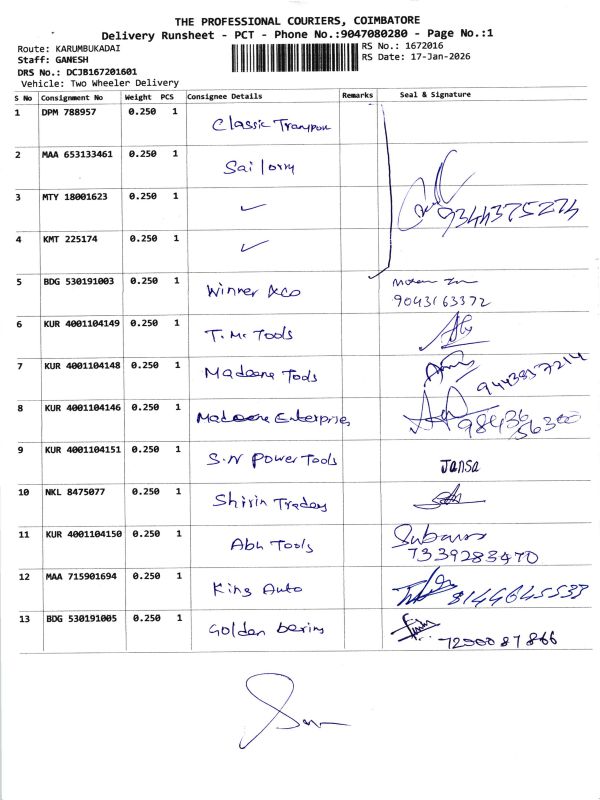 THE PROFESSIONAL COURIERS, COIMBATORE
Delivery Runsheet - PCT - Phone No.:9047080280 - Page No.:1
Route: KARUMBUKADAI
RS No.: 1672016
Staff: GANESH
RS Date: 17-Jan-2026
DRS No.: DCJB167201601
Vehicle: Two Wheeler Delivery
S No Consignment No Weight PCS Consignee Details Remarks Seal & Signature
1 DPM 788957 0.250 1 Classic Transport
2 MAA 653133461 0.250 1 Sai lorry
3 MTY 18001623 0.250 1 ✓ 9344375274
4 KMT 225174 0.250 1 ✓
5 BDG 530191003 0.250 1 Winner &co
9043163372
6 KUR 4001104149 0.250 1 T. Mc Tools
7 KUR 4001104148 0.250 1 Madeena Tools 9443857214
8 KUR 4001104146 0.250 1 Madeena Enterprises 98436
56300
9 KUR 4001104151 0.250 1 S.N Power Tools Jansa
10 NKL 8475077 0.250 1 Shirin Traders
11 KUR 4001104150 0.250 1 Abh Tools
7339283470
12 MAA 715901694 0.250 1 King Auto 8144645533
13 BDG 530191005 0.250 1 Golden bering 7200087866